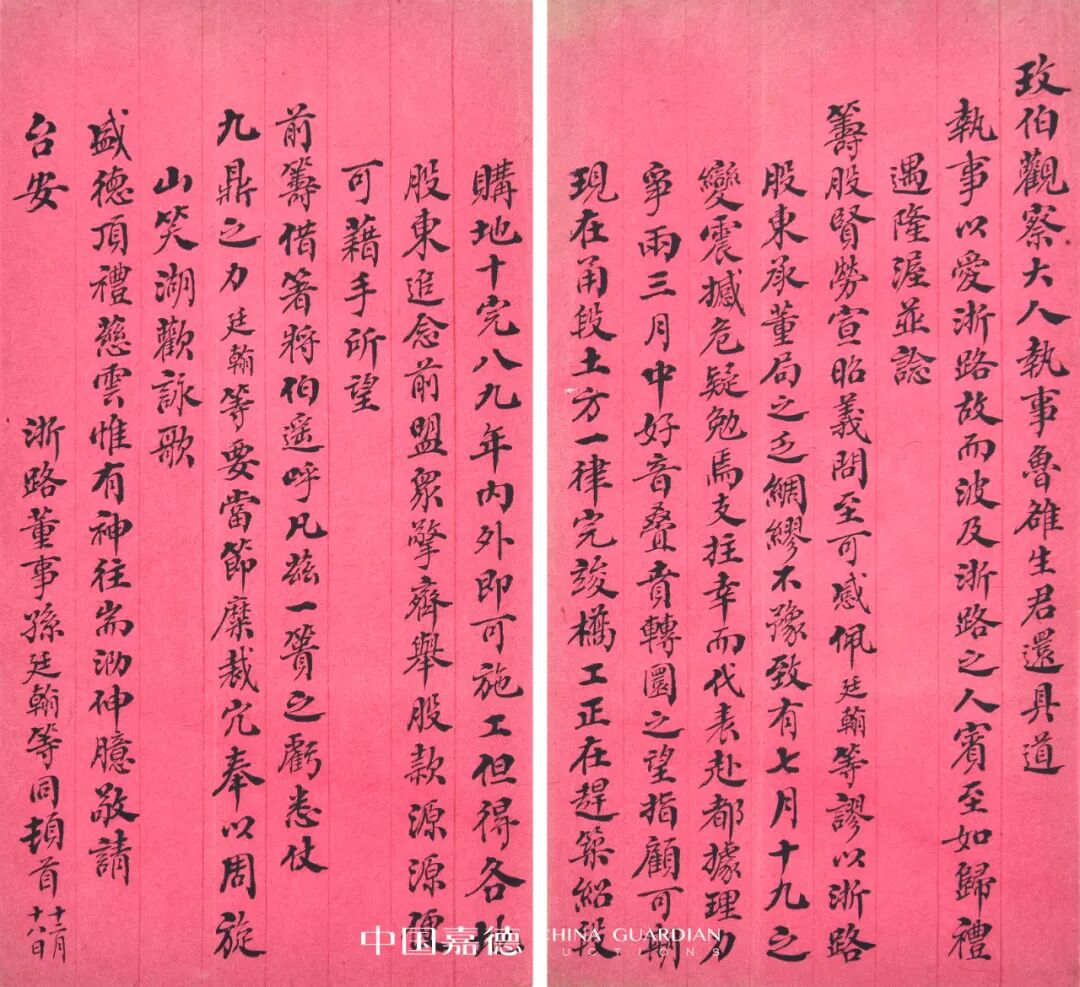 玫伯觀察大人執事魯雄生君還具道
執事以愛浙路故而波及浙路之人賓至如歸禮
遇隆渥並諗
籌股賢勞宣昭義問至可感佩廷翰等謬以浙路
股東承董局之乏綢繆不豫致有七月十九之
變震撼危疑勉焉支拄幸而代表赴都據理力
爭兩三月中好音叠賁轉圜之望指顧可期
現在甬段土方一律完竣橋工正在趕築紹段
購地十完八九年內外即可施工但得各地
股東追念前盟眾擎齊舉股款源源
可藉手所望
前籌借箸將伯遥呼凡茲一簣之虧悉仗
九鼎之力廷翰等要當節糜裁冗奉以周旋
山笑湖歡詠歌
盛德頂禮慈雲惟有神往耑泐伸臆敬請
台安
浙路董事孫廷翰等同頓首十二月十八日
中国嘉德 CHINA GUARDIAN
AUCTIONS